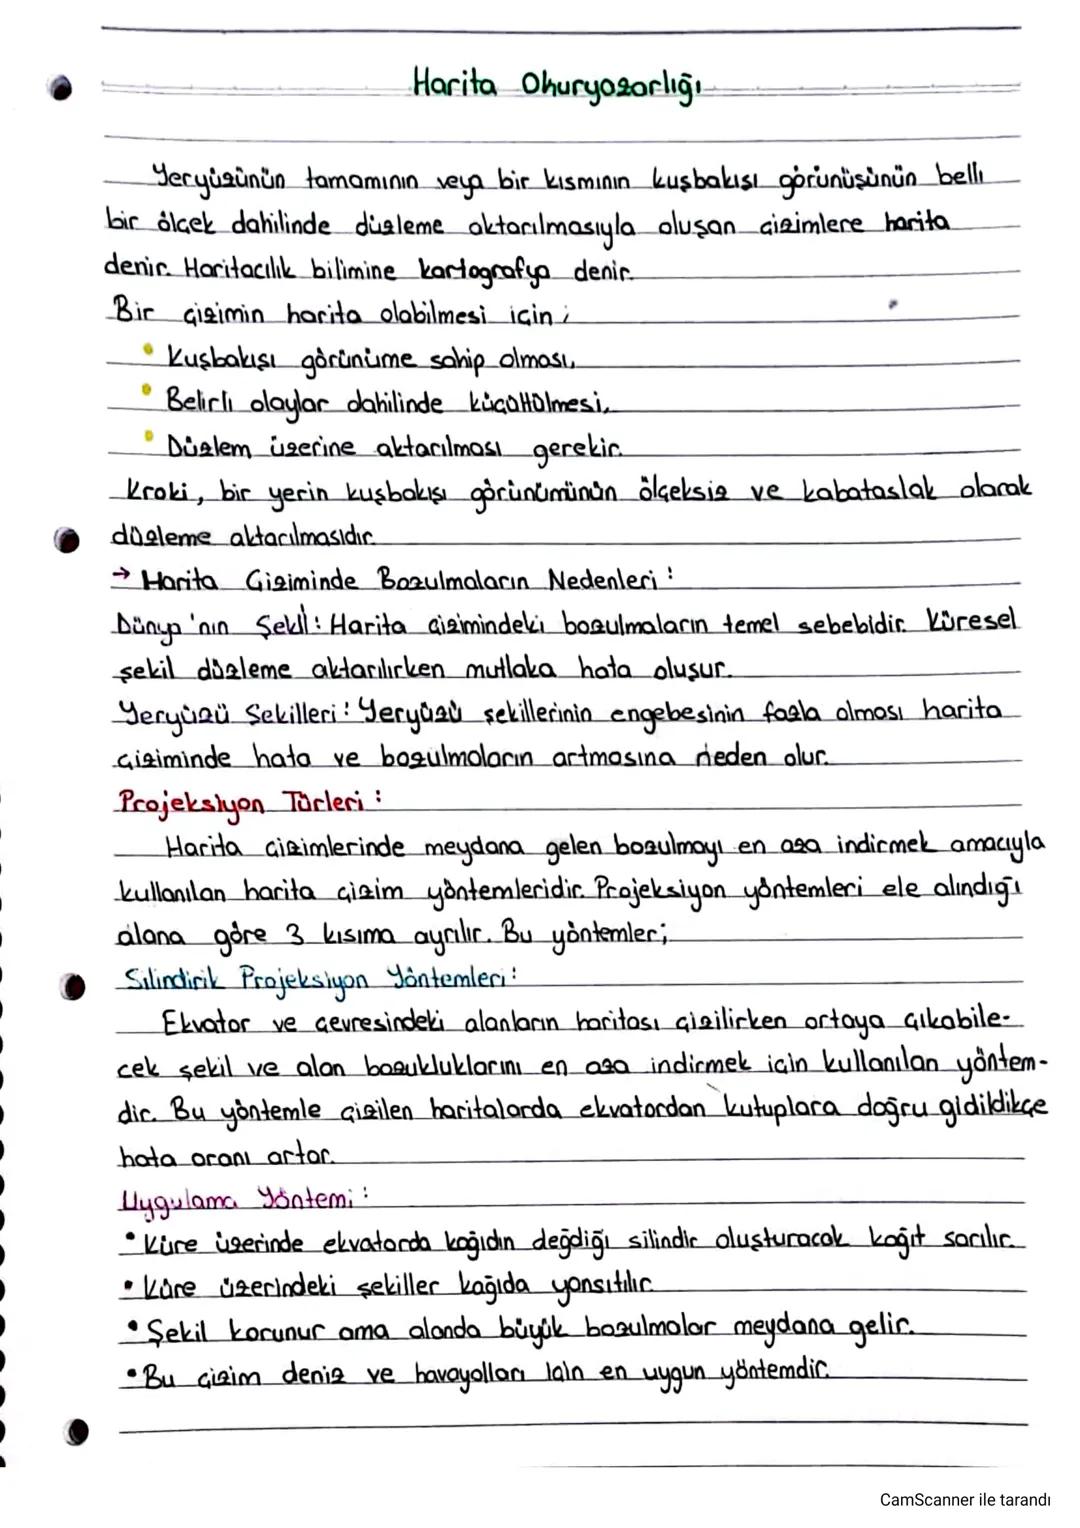 Harita Okuryazarlığı
Yeryüzünün tamamının veya bir kısmının kuşbakışı görünüşünün belli
bir ölçek dahilinde düzleme aktarılmasıyla oluşan çizimlere harita
denir. Haritacılık bilimine kartografya denir.
Bir çizimin harita olabilmesi için;
• Kuşbakışı görünüme sahip olması,
• Belirli olaylar dahilinde küçültülmesi,
• Düzlem üzerine aktarılması gerekir.
Kroki, bir yerin kuşbakışı görünümünün ölçeksiz ve kabataslak olarak
düzleme aktarılmasıdır.
→ Harita Çiziminde Bozulmaların Nedenleri:
Dünya'nın Şekli: Harita çizimindeki bozulmaların temel sebebidir. Küresel
şekil düzleme aktarılırken mutlaka hata oluşur.
Yeryüzü Şekilleri: Yeryüzü şekillerinin engebesinin fazla olması harita
çiziminde hata ve bozulmaların artmasına neden olur.
Projeksiyon Türleri:
Harita çizimlerinde meydana gelen bozulmayı en aza indirmek amacıyla
kullanılan harita çizim yöntemleridir. Projeksiyon yöntemleri ele alındığı
alana göre 3 kısıma ayrılır. Bu yöntemler;
Silindirik Projeksiyon Yöntemleri:
Ekvator ve çevresindeki alanların haritası çizilirken ortaya çıkabile-
cek şekil ve alan bozukluklarını en aza indirmek için kullanılan yöntem-
dir. Bu yöntemle çizilen haritalarda ekvatordan kutuplara doğru gidildikçe
hata oranı artar.
Uygulama Yöntemi:
• Küre üzerinde ekvatorda kağıdın değdiği silindir oluşturacak kağıt sarılır.
• Küre üzerindeki şekiller kağıda yansıtılır.
• Şekil korunur ama alanda büyük bozulmalar meydana gelir.
• Bu çizim deniz ve havayolları için en uygun yöntemdir.
CamScanner ile tarandı